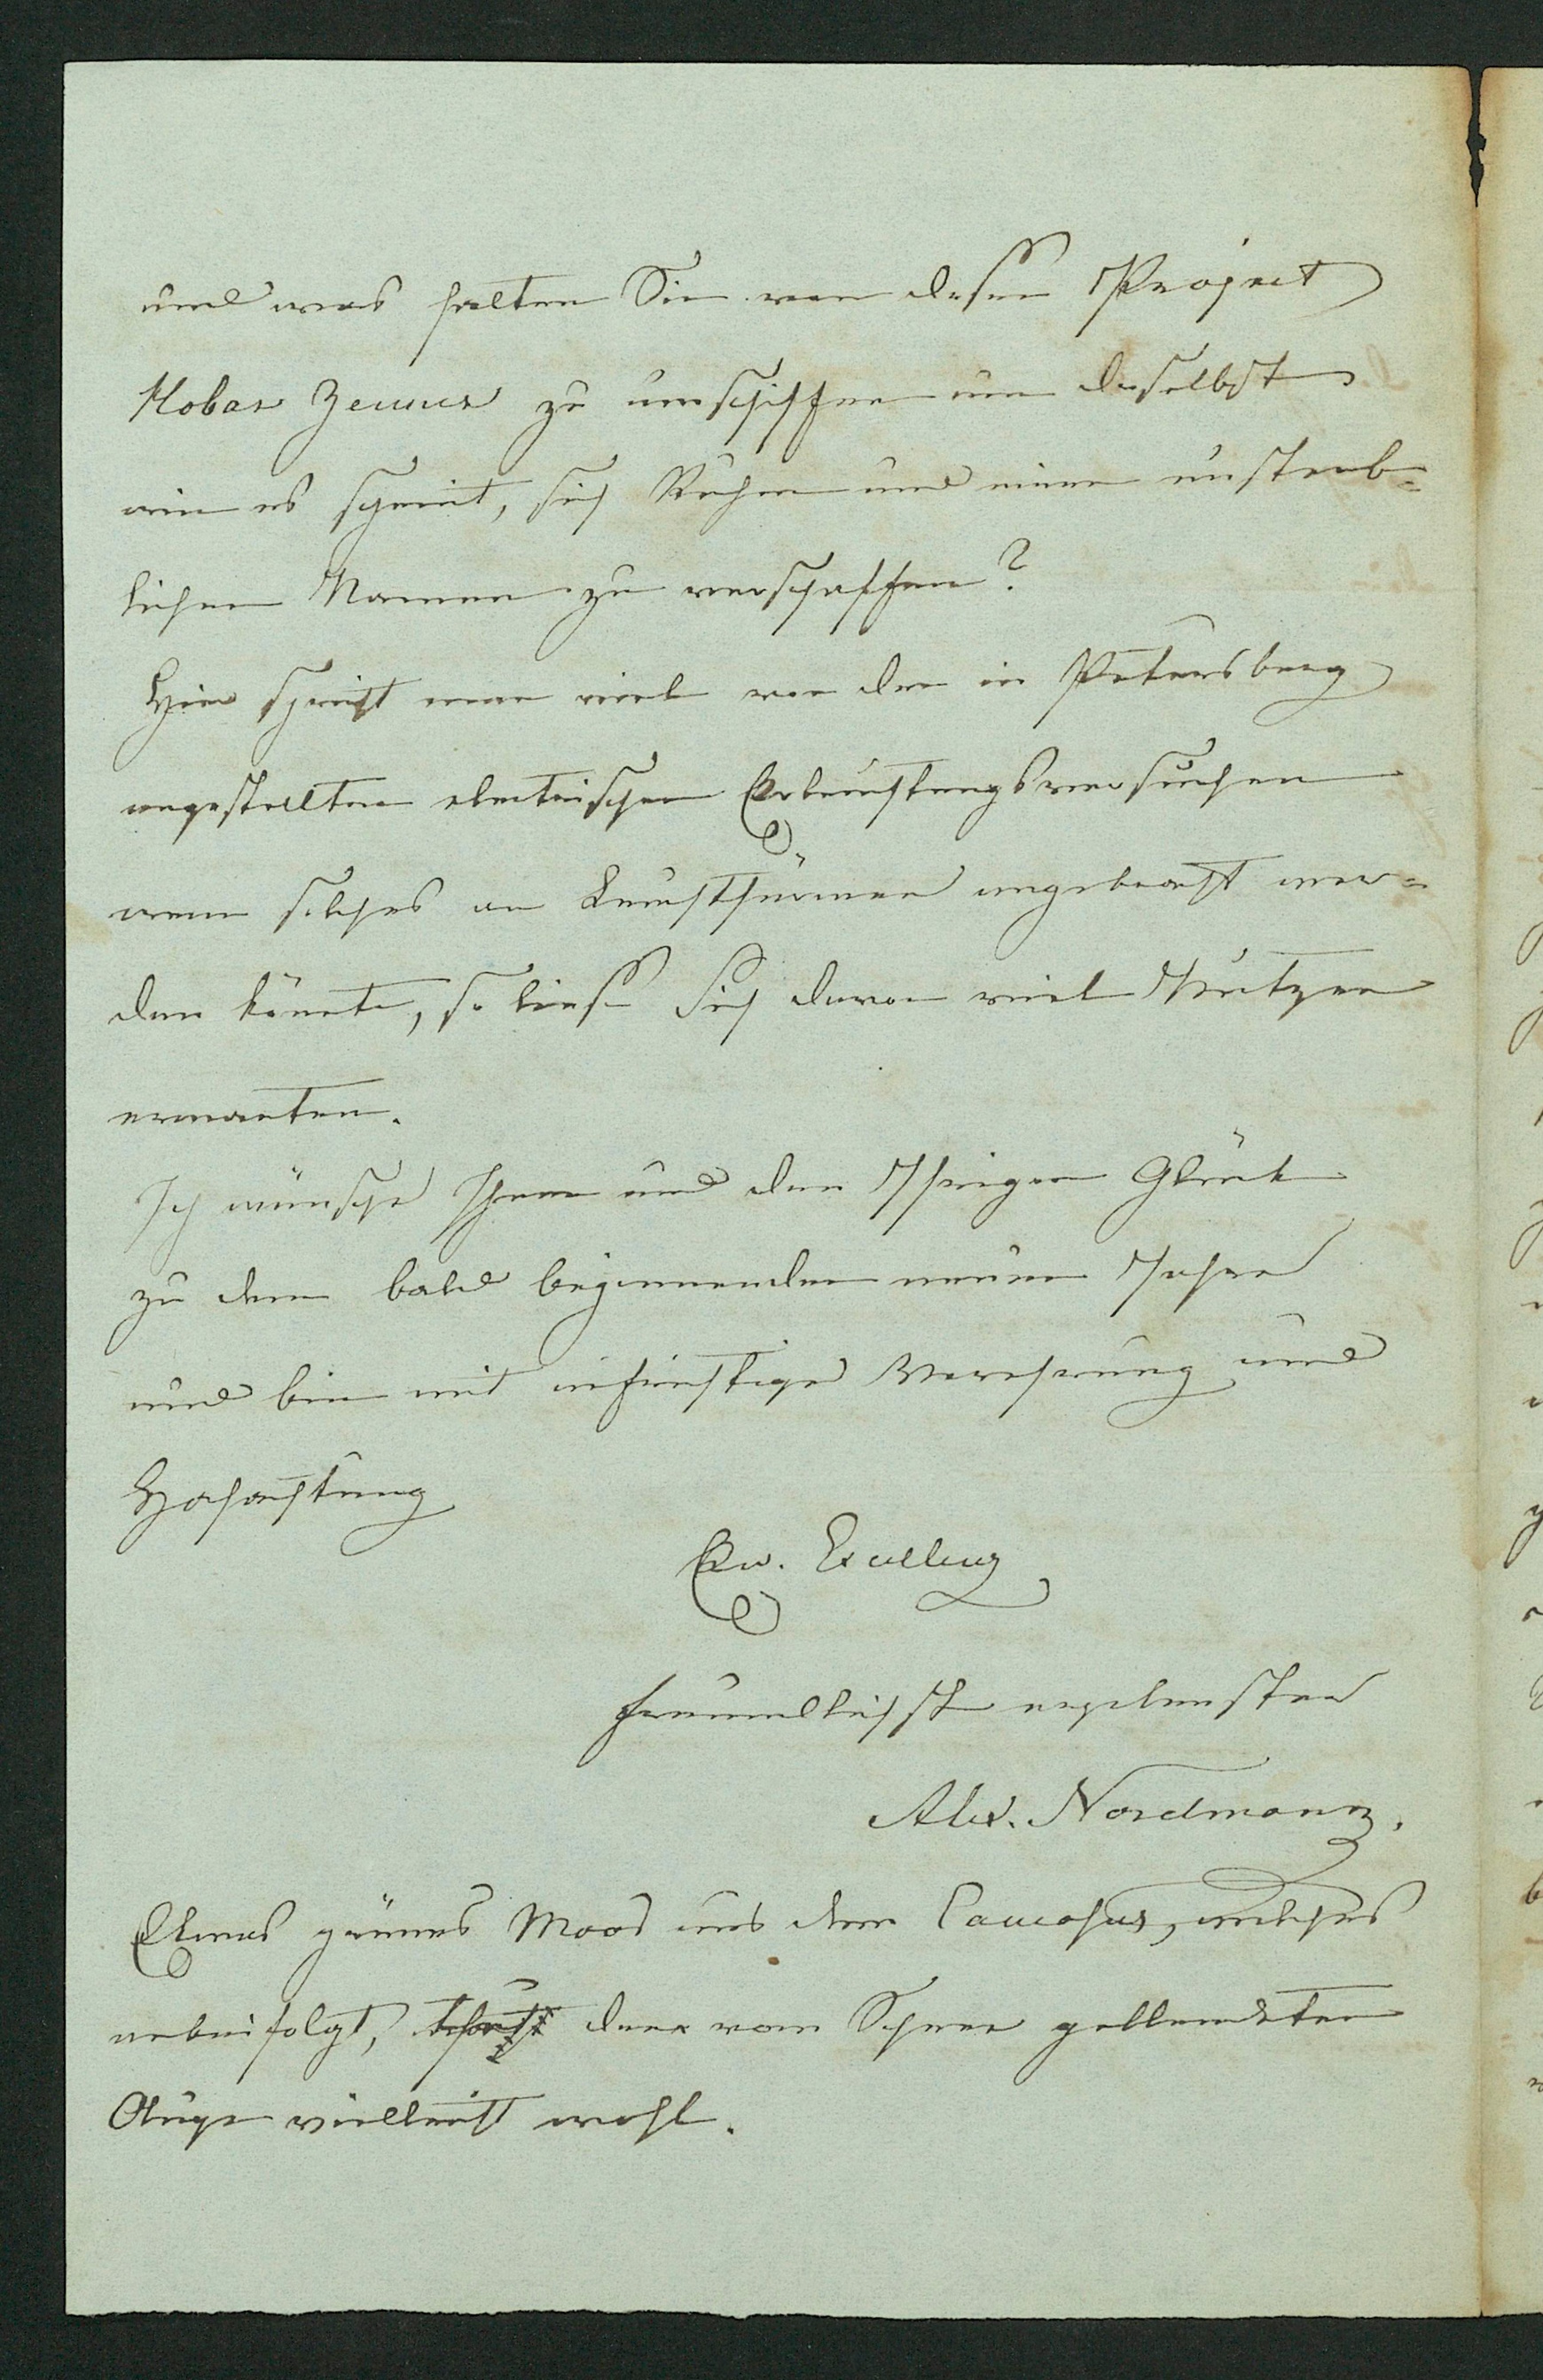 und was halten Sie von dessen Project
Новая Земля zu umschiffen um daselbst
wie es scheint, sich Ruhm und einen unsterb=
lichen Namen zu verschaffen?
Hier spricht man viel von den in Petersburg
angestellten electrischen Erleuchtungsversuchen
wenn solches an Leuchtthürmen angebracht wer=
den könnte, so liesse sich davon viel Nutzen
erwarten.
Ich wünsche Ihnen und den Ihrigen Glück
zu dem bald beginnenden neuen Jahre
und bin mit aufrichtiger Verehrung und
Hochachtung
Ew. Excellenz
freundlichst ergebenster
Alex. Nordmann.
Etwas grünes Moos aus dem Caucasus, welches
nebenfolgt, thut dem vom Schnee geblendeten
Auge vielleicht wohl.